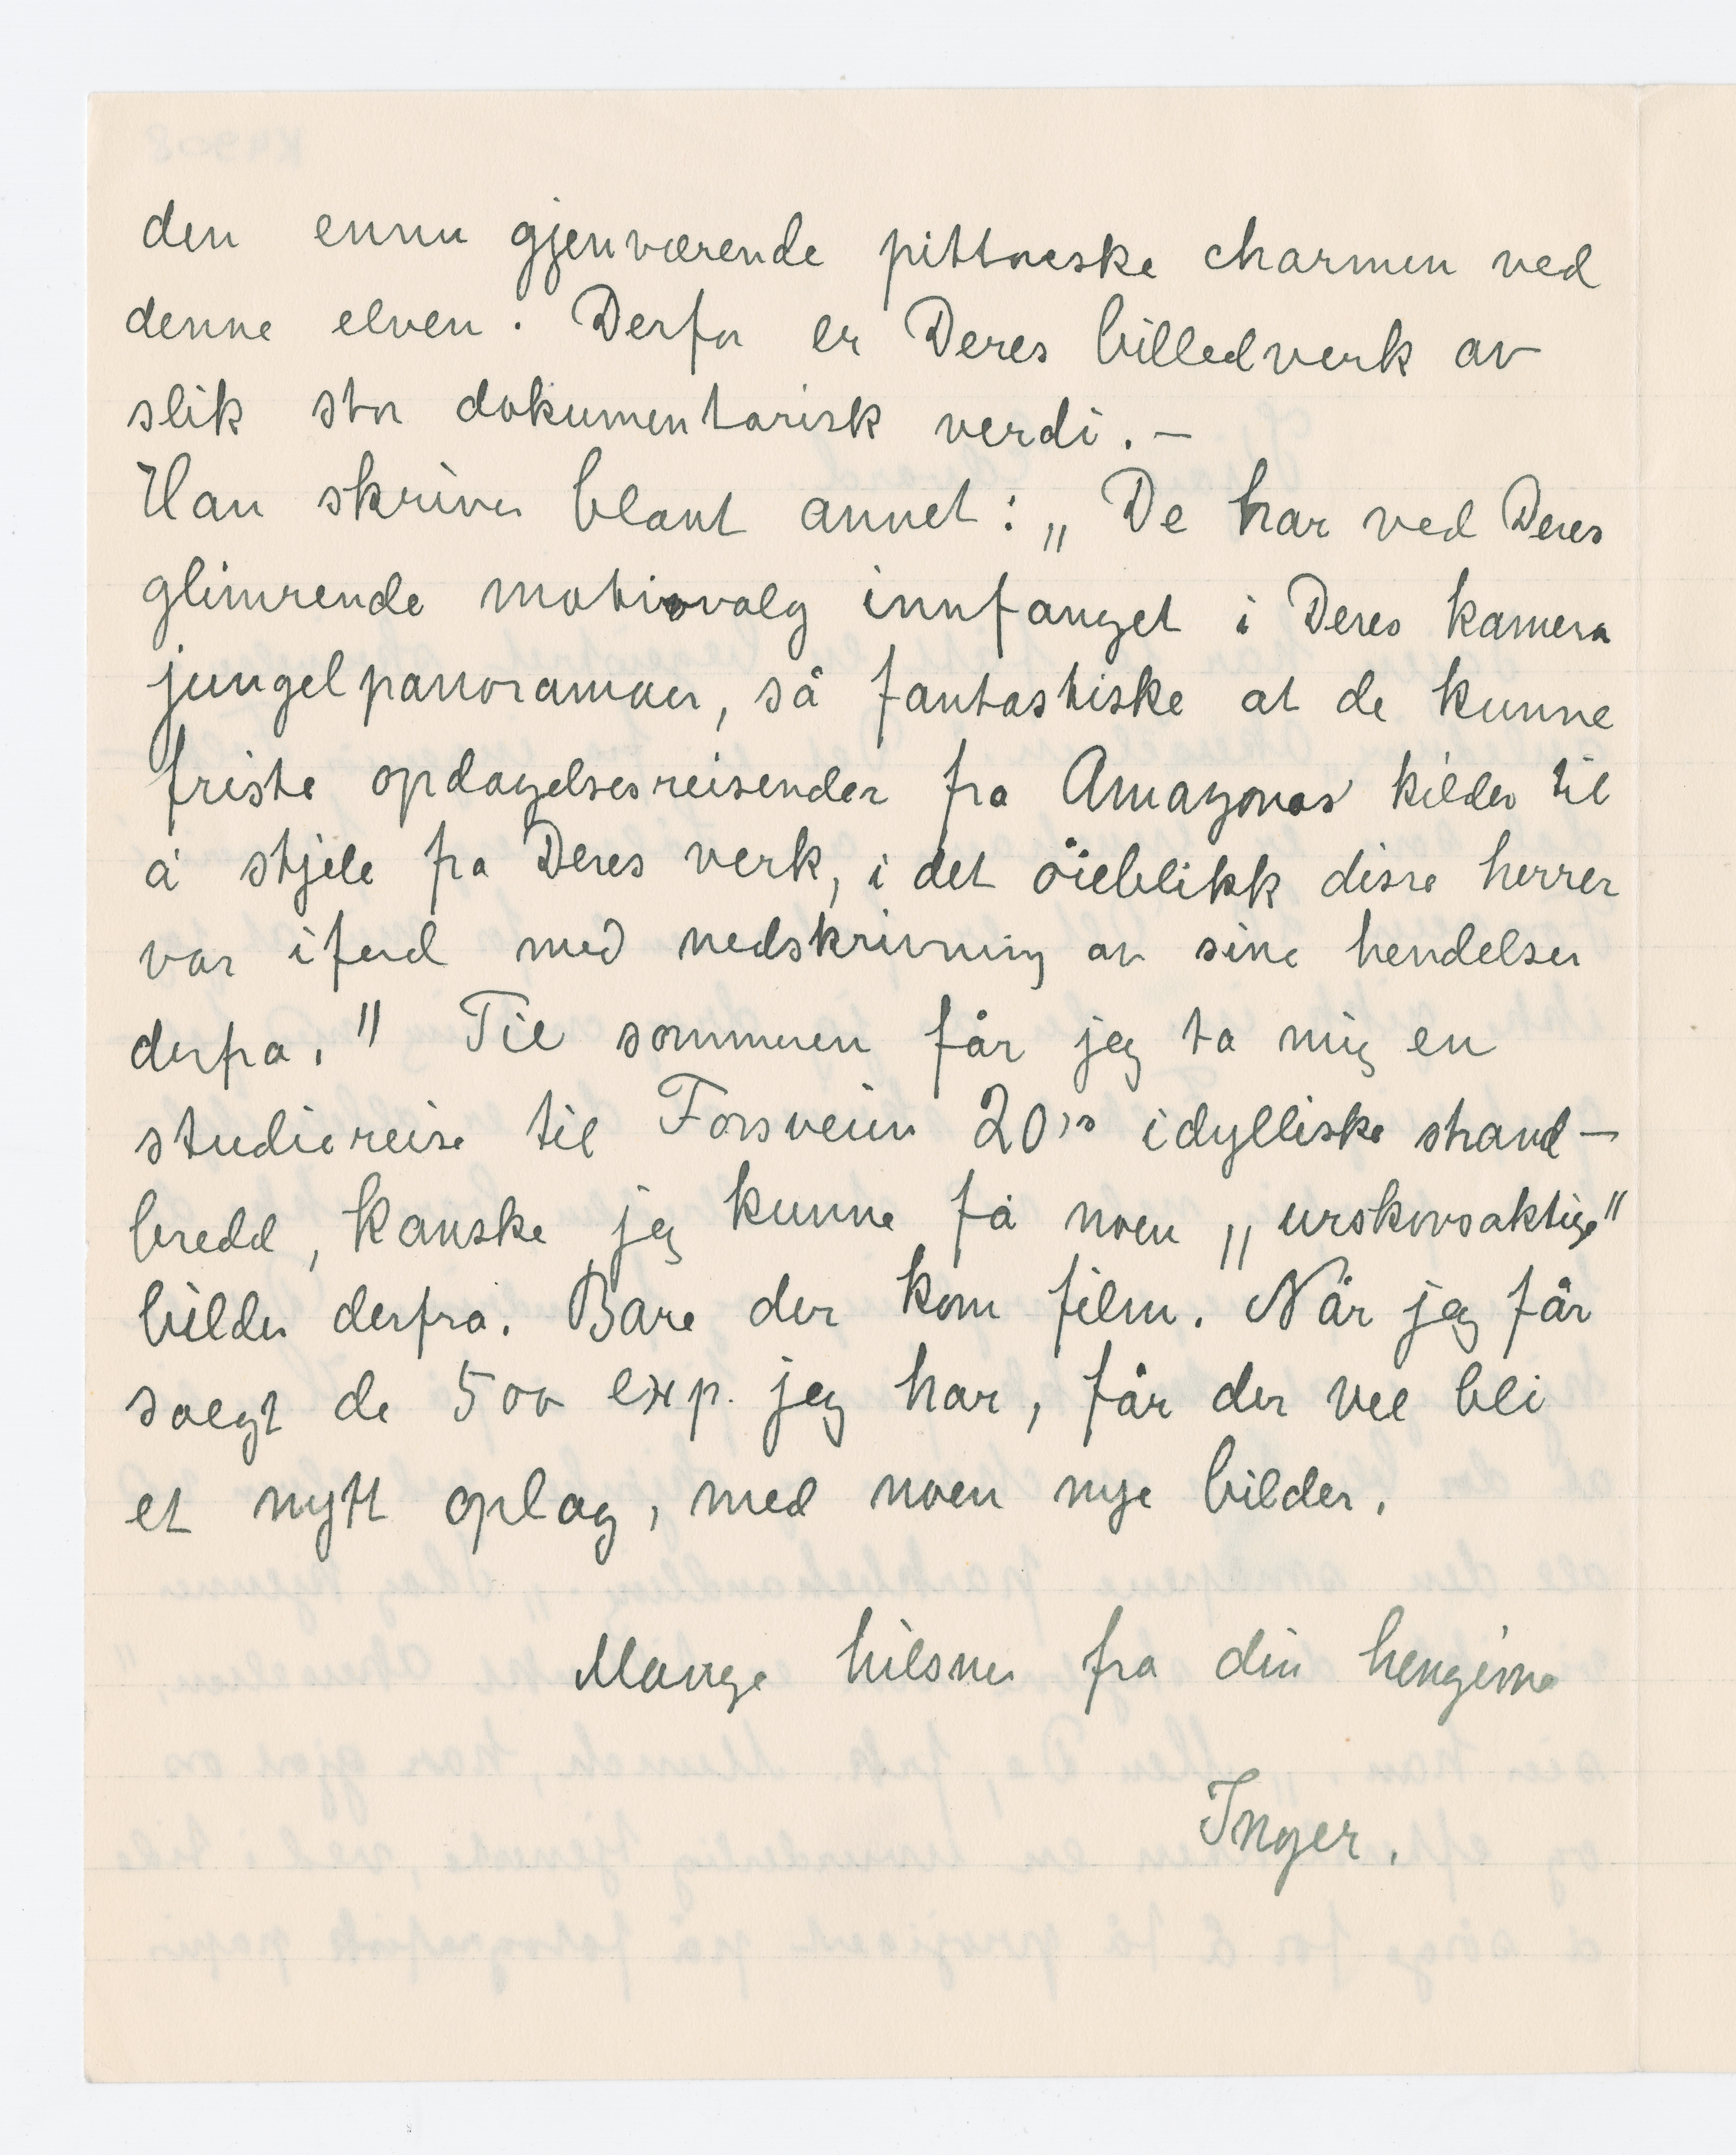 den ennu gjenværende pittoreske charmen ved
denne elven. Derfor er Deres billedverk av
slik stor dokumentarisk verdi. –
Han skriver blant annet: „De har ved Deres
glimrende motivvalg innfanget i Deres kamera
jungelpanoramaer, så fantastiske at de kunne
friste opdagelsesreisender fra Amazonas' kilder til
å stjele fra Deres verk, i det öieblikk disse herrer
var iferd med nedskrivning av sine hendelser
derfra." Til sommeren får jeg ta mig en
studiereise til Forsveien 20's idylliske strand–
bredd, kanske jeg kunne få noen „urskovsaktige"
bilder derfra. Bare der kom film. Når jeg får
solgt de 500 exp. jeg har, får der vel bli
et nytt oplag, med noen nye bilder.
Mange hilsner fra din hengivne
Inger.